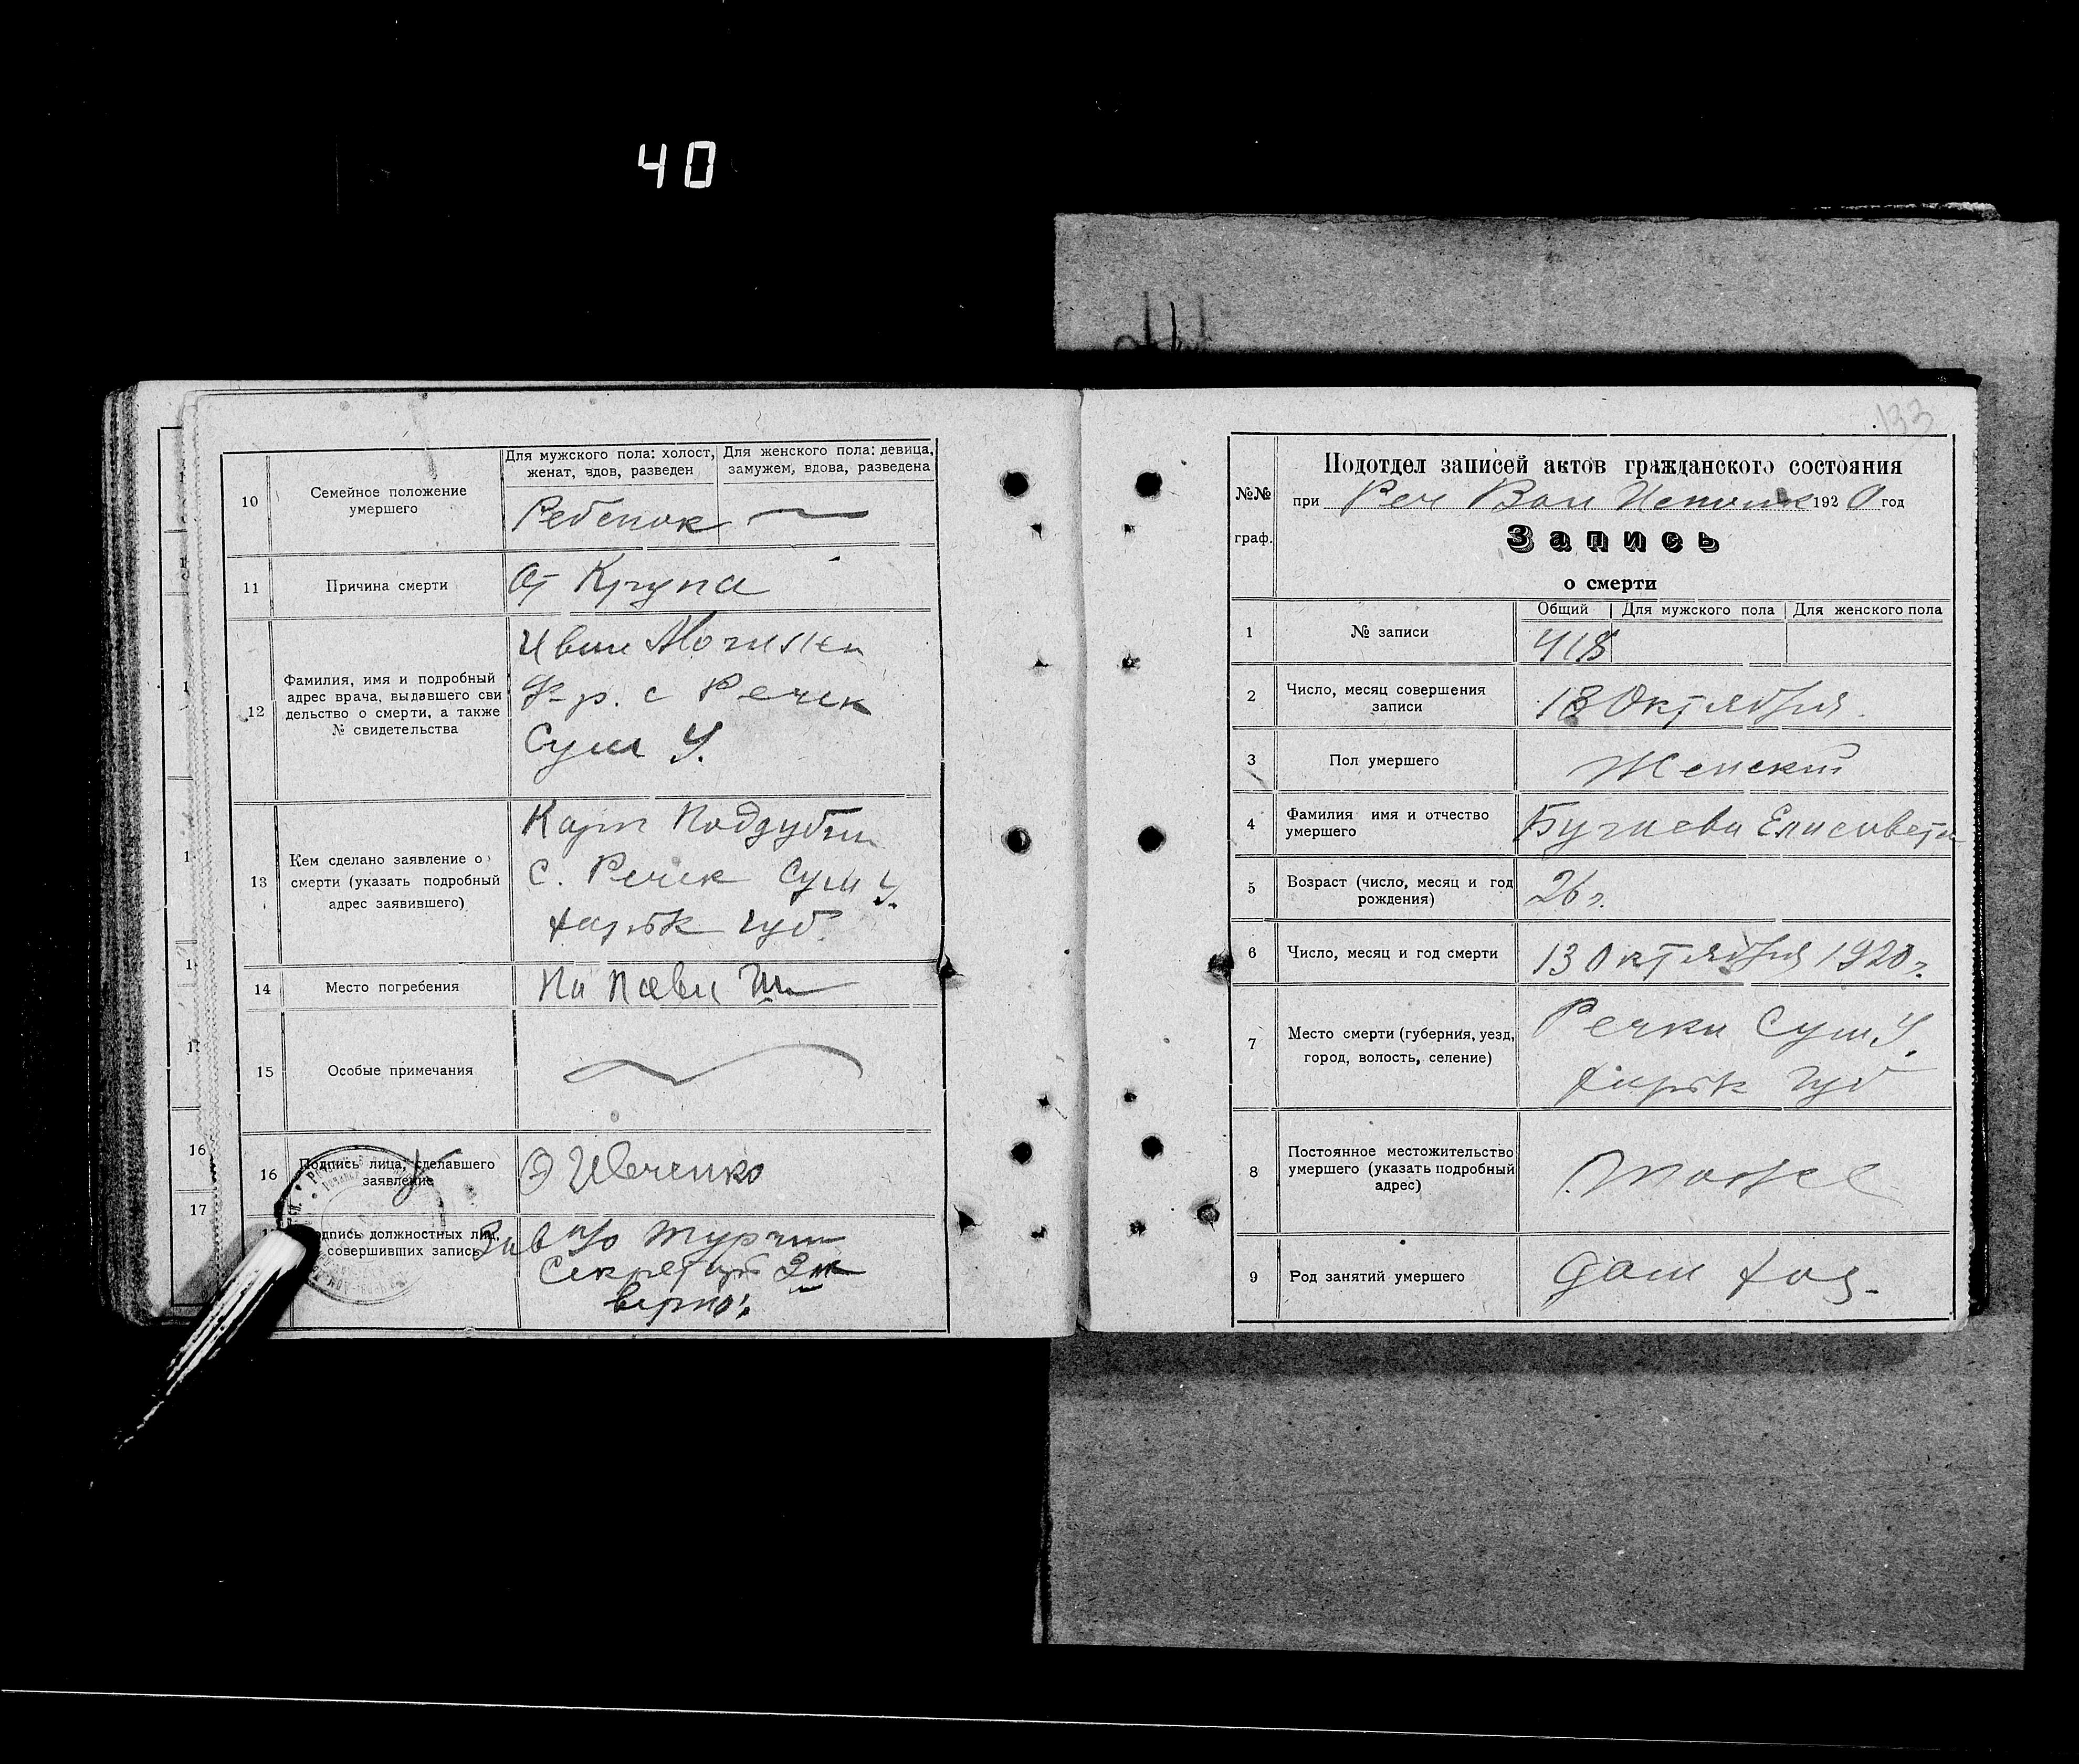 40
10
Семейное положение
умершего
Для мужского пола: холост,
женат, вдов, разведен
Для женского пола: девица,
замужем, вдова, разведена
Ребенок
11
Причина смерти
От Крупа
12
Фамилия, имя и подробный
адрес врача, выдавшего сви
дельство о смерти, а также
№ свидетельства
Иван
с Речек
Сум У.
13
Кем сделано заявление о
смерти (указать подробный
адрес заявившего)
Карп Поддубн
С. Речек Сум У.
Харьк губ.
14
Место погребения
15
Особые примечания
16
Подпись лица, сделавшего
заявление
Ивченко
подпись должностных лиц,
совершивших запись
Зав п/о
Секретарь
верно:
16
17
133
№№
граф.
Подотдел записей актов гражданского состояния
при Реч Вол Исполк 1920 год
Запись
о смерти
1
№ записи
Общий
Для мужского пола
Для женского пола
418
2
Число, месяц совершения
записи
18 Октября.
3
Пол умершего
Женский
4
Фамилия имя и отчество
умершего
Елисовета
5
Возраст (число, месяц и год
рождения)
26 г.
6
Число, месяц и год смерти
13 Октября 1920 г.
7
Место смерти (губерния, уезд,
город, волость, селение)
Речки Сум У.
Харьк губ
8
Постоянное местожительство
умершего (указать подробный
адрес)
9
Род занятий умершего
дом хоз.